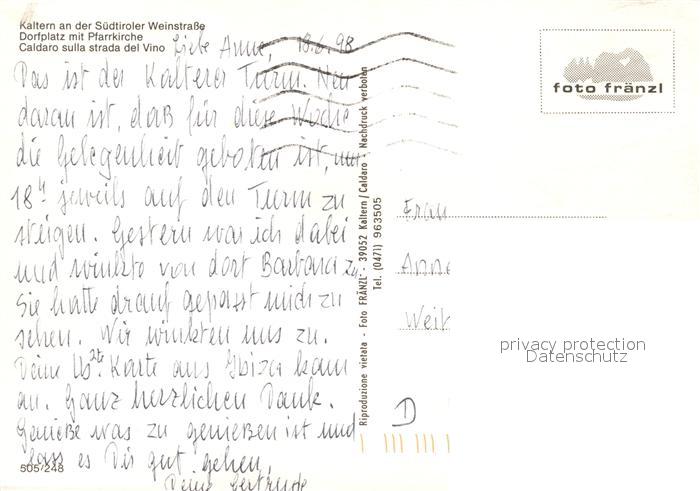 Kaltern an der Südtiroler Weinstraße
Dorfplatz mit Pfarrkirche
Caldaro sulla strada del Vino
Liebe Anne, 18.6.98
Das ist der Kalterer Turm. Neu
daran ist, daß für diese Woche
die Gelegenheit geboten ist, um
18 h jeweils auf den Turm zu
steigen. Gestern war ich dabei
und winkte von dort Barbara zu
Sie hatte drauf gepasst mich zu
sehen. Wir winkten uns zu.
Deine Karte aus Ibiza kam
an. Ganz herzlichen Dank.
Genieße was zu genießen ist und
lass es Dir gut gehen,
Deine Gertrude
505/248
Riproduzione vietata - Foto FRÄNZL - 39052 Kaltern/Caldaro - Nachdruck verboten
Tel. (0471) 963505
foto fränzl
Frau
Anne
Weit
D
privacy protection
Datenschutz